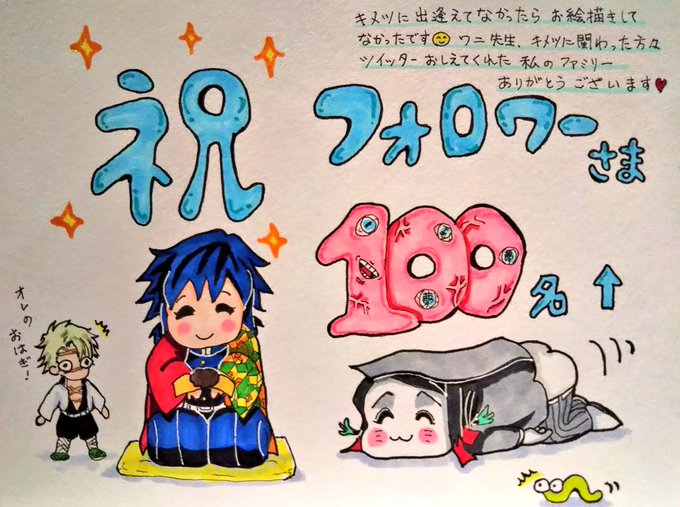 キメツに出逢えてなかったら お絵描きして
なかったです😊 ワニ先生、キメツに関わった方々
ツイッターおしえてくれた 私のファミリー
ありがとうございます♥
祝 フォロワーさま
100名↑
オレの
おはぎ!